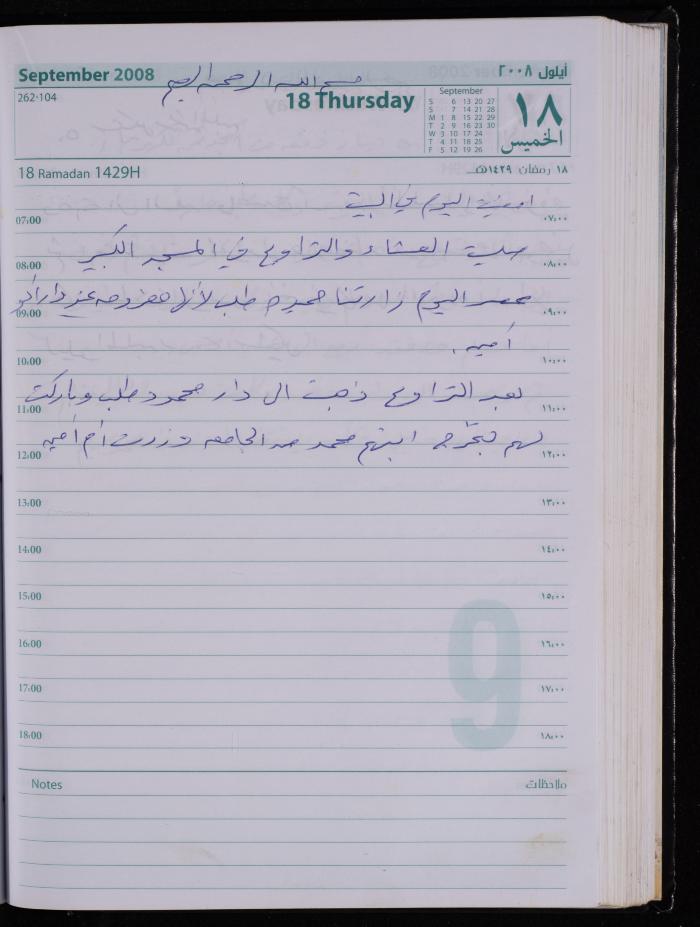 September 2008
بسم الله الرحمن الرحيم
أيلول ٢٠٠٨
262-104
18 Thursday
September
S 6 13 20 27
S 7 14 21 28
M 1 8 15 22 29
T 2 9 16 23 30
W 3 10 17 24
T 4 11 18 25
F 5 12 19 26
١٨
الخميس
18 Ramadan 1429H
١٨ رمضان ١٤٢٩هـ
اليوم في البيت
07:00 ٠٧:٠٠
صليت العشاء والتراويح في المسجد الكبير
08:00 ٠٨:٠٠
عصر اليوم زارتنا حميده طلب لأنها معزومه عند دار أبو
09:00 ٠٩:٠٠
أميه .
10:00 ١٠:٠٠
بعد التراويح ذهبت الى دار محمود طلب وباركت
11:00 ١١:٠٠
لهم بتخرج ابنهم محمد من الجامعه وزرت أم أميه
12:00 ١٢:٠٠
13:00 ١٣:٠٠
14:00 ١٤:٠٠
15:00 ١٥:٠٠
16:00 ١٦:٠٠
17:00 ١٧:٠٠
18:00 ١٨:٠٠
9
Notes ملاحظات